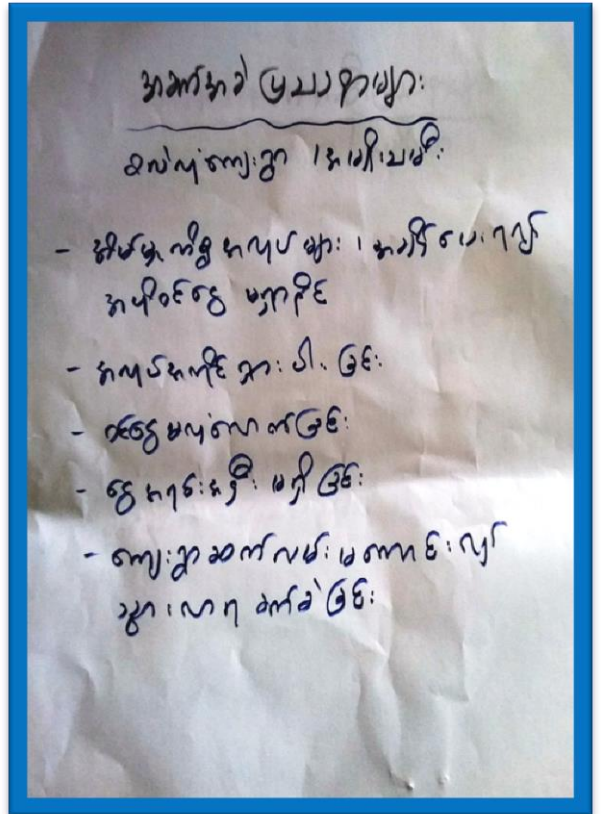 အခက်အခဲ ပြဿနာများ
စလဲလှကျေးရွာ ၊ အမျိုးသမီး
- အိမ်မှုကိစ္စ အလုပ်များ ၊ အချိန်ပေးရလျှင်
အပိုဝင်ငွေ မရှာနိုင်
- အလုပ်အကိုင် ရှားပါးခြင်း
- ဝင်ငွေ မလုံလောက်ခြင်း
- ငွေအရင်းအနှီး မရှိခြင်း
- ကျေးရွာဆက်လမ်း မကောင်းလျှင်
သွားလာရ ခက်ခဲခြင်း